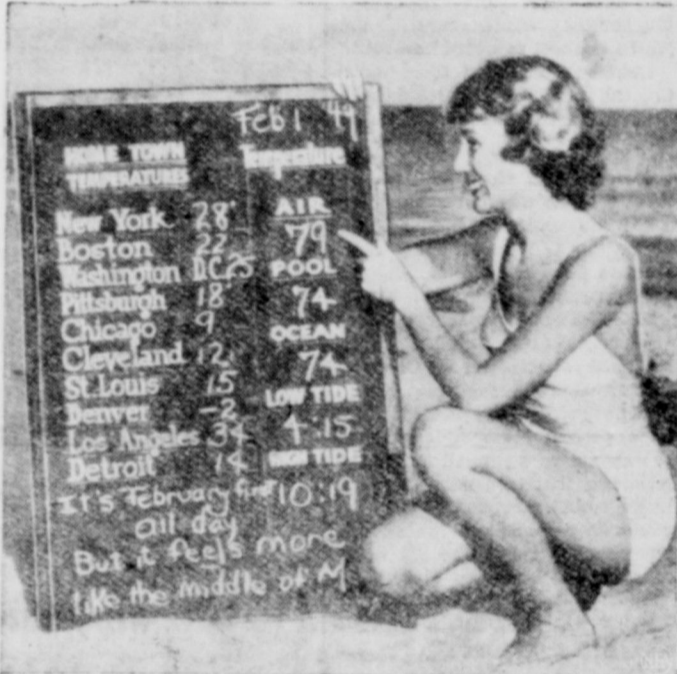 Feb 1 '49
HOME TOWN
TEMPERATURES
Temperature
New York 28
Boston 22
Washington D.C. 25
Pittsburgh 18
Chicago 9
Cleveland 12
St. Louis 15
Denver -2
Los Angeles 34
Detroit 14
AIR
79
POOL
74
OCEAN
74
LOW TIDE
4:15
HIGH TIDE
10:19
It's February first
all day
But it feels more
like the middle of M